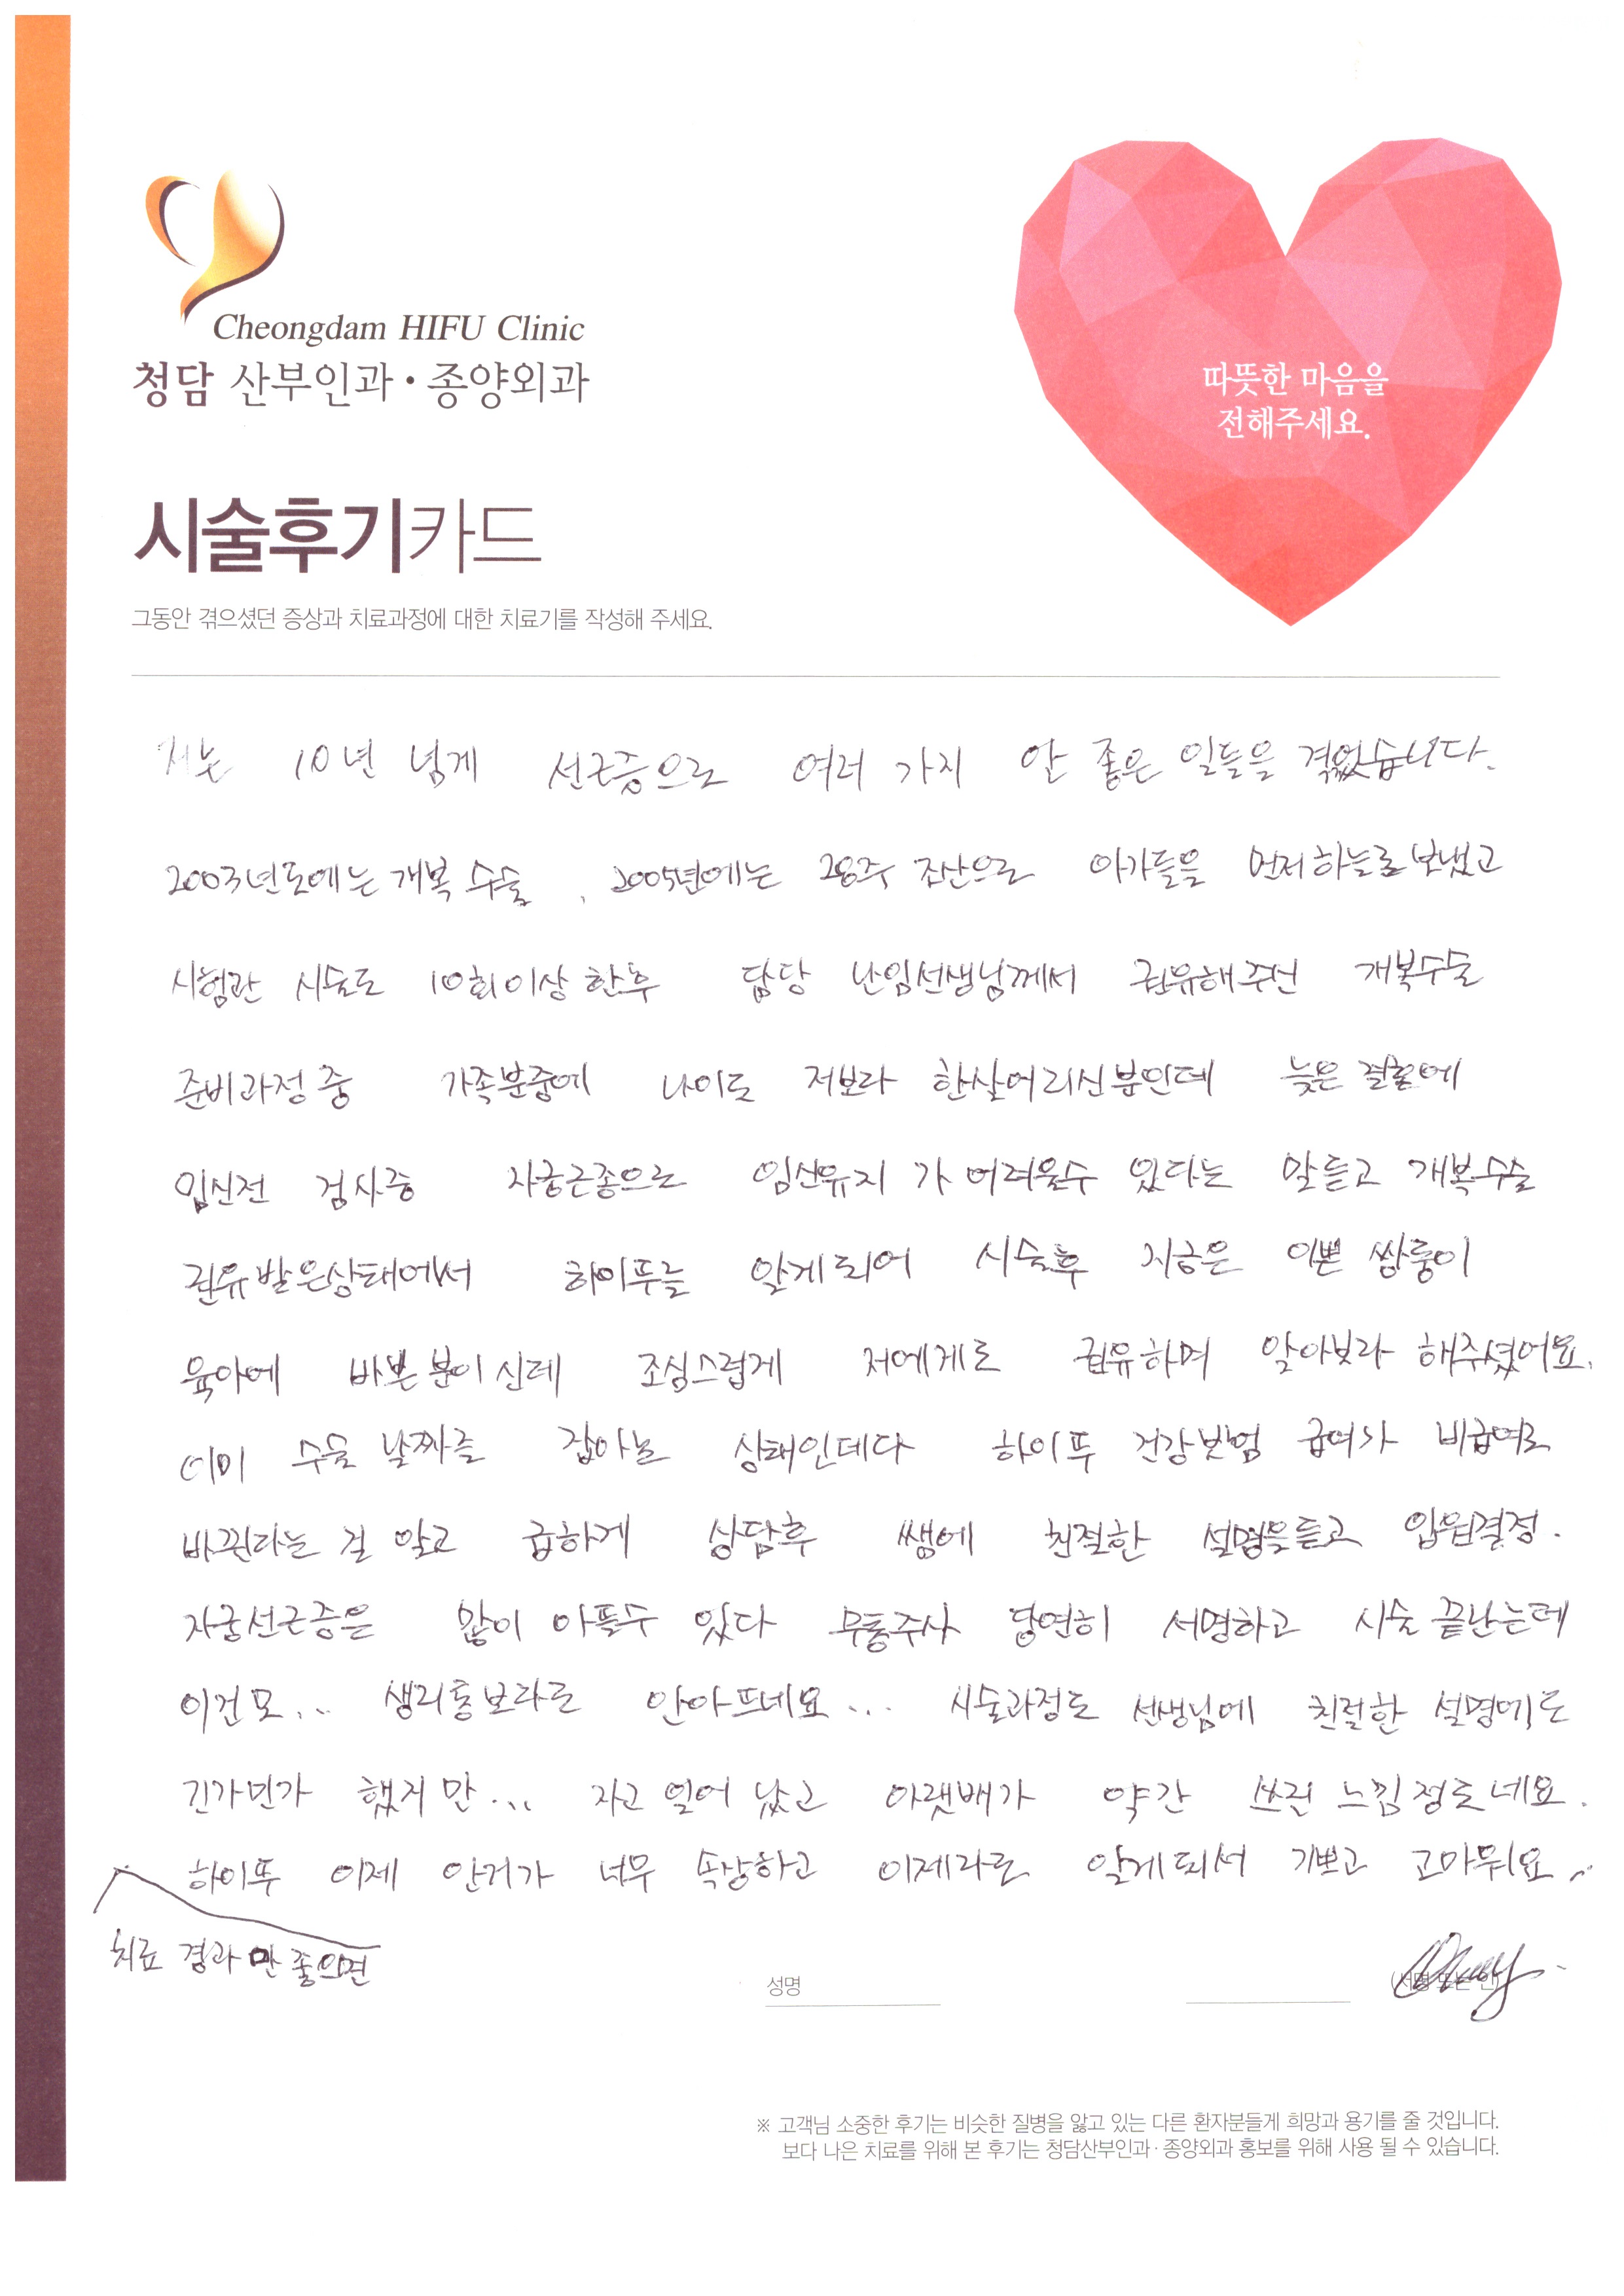 Cheongdam HIFU Clinic
청담 산부인과·종양외과
따뜻한 마음을
전해주세요.
시술후기카드
그동안 겪으셨던 증상과 치료과정에 대한 치료기를 작성해 주세요.
저는 10년 넘게 선근증으로 여러 가지 안 좋은 일들을 겪었습니다.
2003년도에는 개복 수술, 2005년에는 28주 조산으로 아가들을 먼저 하늘로 보냈고
시험관 시술도 10회이상 한후 담당 난임선생님께서 권유해주신 개복수술
준비과정 중 가족분중에 나이도 저보다 한살어리신분인데 늦은 결혼에
임신전 검사중 자궁근종으로 임신유지가 어려울수 있다는 말듣고 개복수술
권유받은상태에서 하이푸를 알게되어 시술후 지금은 이쁜 쌍둥이
육아에 바쁜분이신데 조심스럽게 저에게도 권유하며 알아보라 해주셨어요.
이미 수술 날짜를 잡아논 상태인데다 하이푸 건강보험 급여가 비급여로
바뀐다는 걸 알고 급하게 상담후 쌤에 친절한 설명을듣고 입원결정.
자궁선근증은 많이 아플수 있다 무통주사 당연히 서명하고 시술 끝난는데
이건 모... 생리통보라도 안아프네요... 시술과정도 선생님에 친절한 설명에도
긴가민가 했지만... 자고 일어 났고 아랫배가 약간 쓰린 느낌정도네요.
하이푸 이제 안거가 너무 속상하고 이제라도 알게되서 기쁘고 고마워요..
치료 결과만 좋으면
성명
(서명 또는 인)
※ 고객님 소중한 후기는 비슷한 질병을 앓고 있는 다른 환자분들게 희망과 용기를 줄 것입니다.
보다 나은 치료를 위해 본 후기는 청담산부인과·종양외과 홍보를 위해 사용 될 수 있습니다.